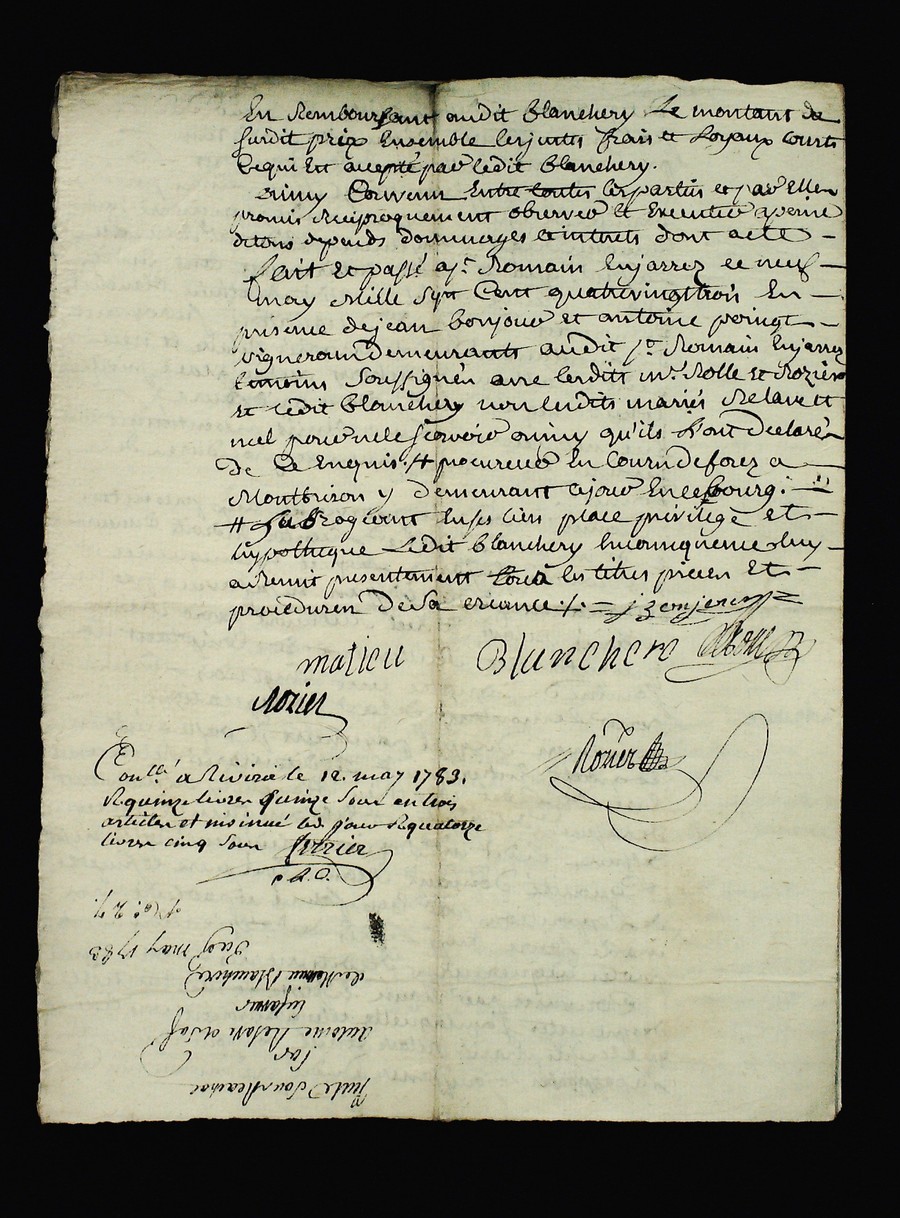 En Remboursant audit Blanchery Le montant du
susdit prix Ensemble les justes frais et Loyaux couts
ce qui Est accepté par ledit Blanchery.
ainsy Convenu Entre toutes les parties et par Elles
promis Réciproquement observer Et Executer a peine
de tous depends dommages et interets dont acte
fait Et passé a St. Romain En jarrez ce neuf
may Mille Sept Cent quatrevingttrois En
presence de jean bonjour et antoine poingt
vignerons demeurants audit St. Romain En jarrez
temoins Soussignés avec lesdits mrs. Rolle et Rozier
et ledit Blanchery non lesdits mariés Relave et
pour ne le sçavoir ainsy qu'ils L'ont declaré
de ce Enquis. # procureur En Cour de forez a
Montbrison y demeurant a jour En ce bourg.
# Subrogeant En ses lieu place privilege et
hypotheque Ledit Blanchery En consequence luy
a Remit presentement les titres pieces Et
procedures De Sa creance
matieu Blanchere
Rozier
Rozier
Conllé a Rivirie le 12. may 1783.
R quinze livres quinze Sous en trois
articles et insinué led. jour R quatorze
livres cinq Sous
No. 27.
Du 9 may 1783
de Blanchere
En faveur
Antoine Relave et Sa f
Par